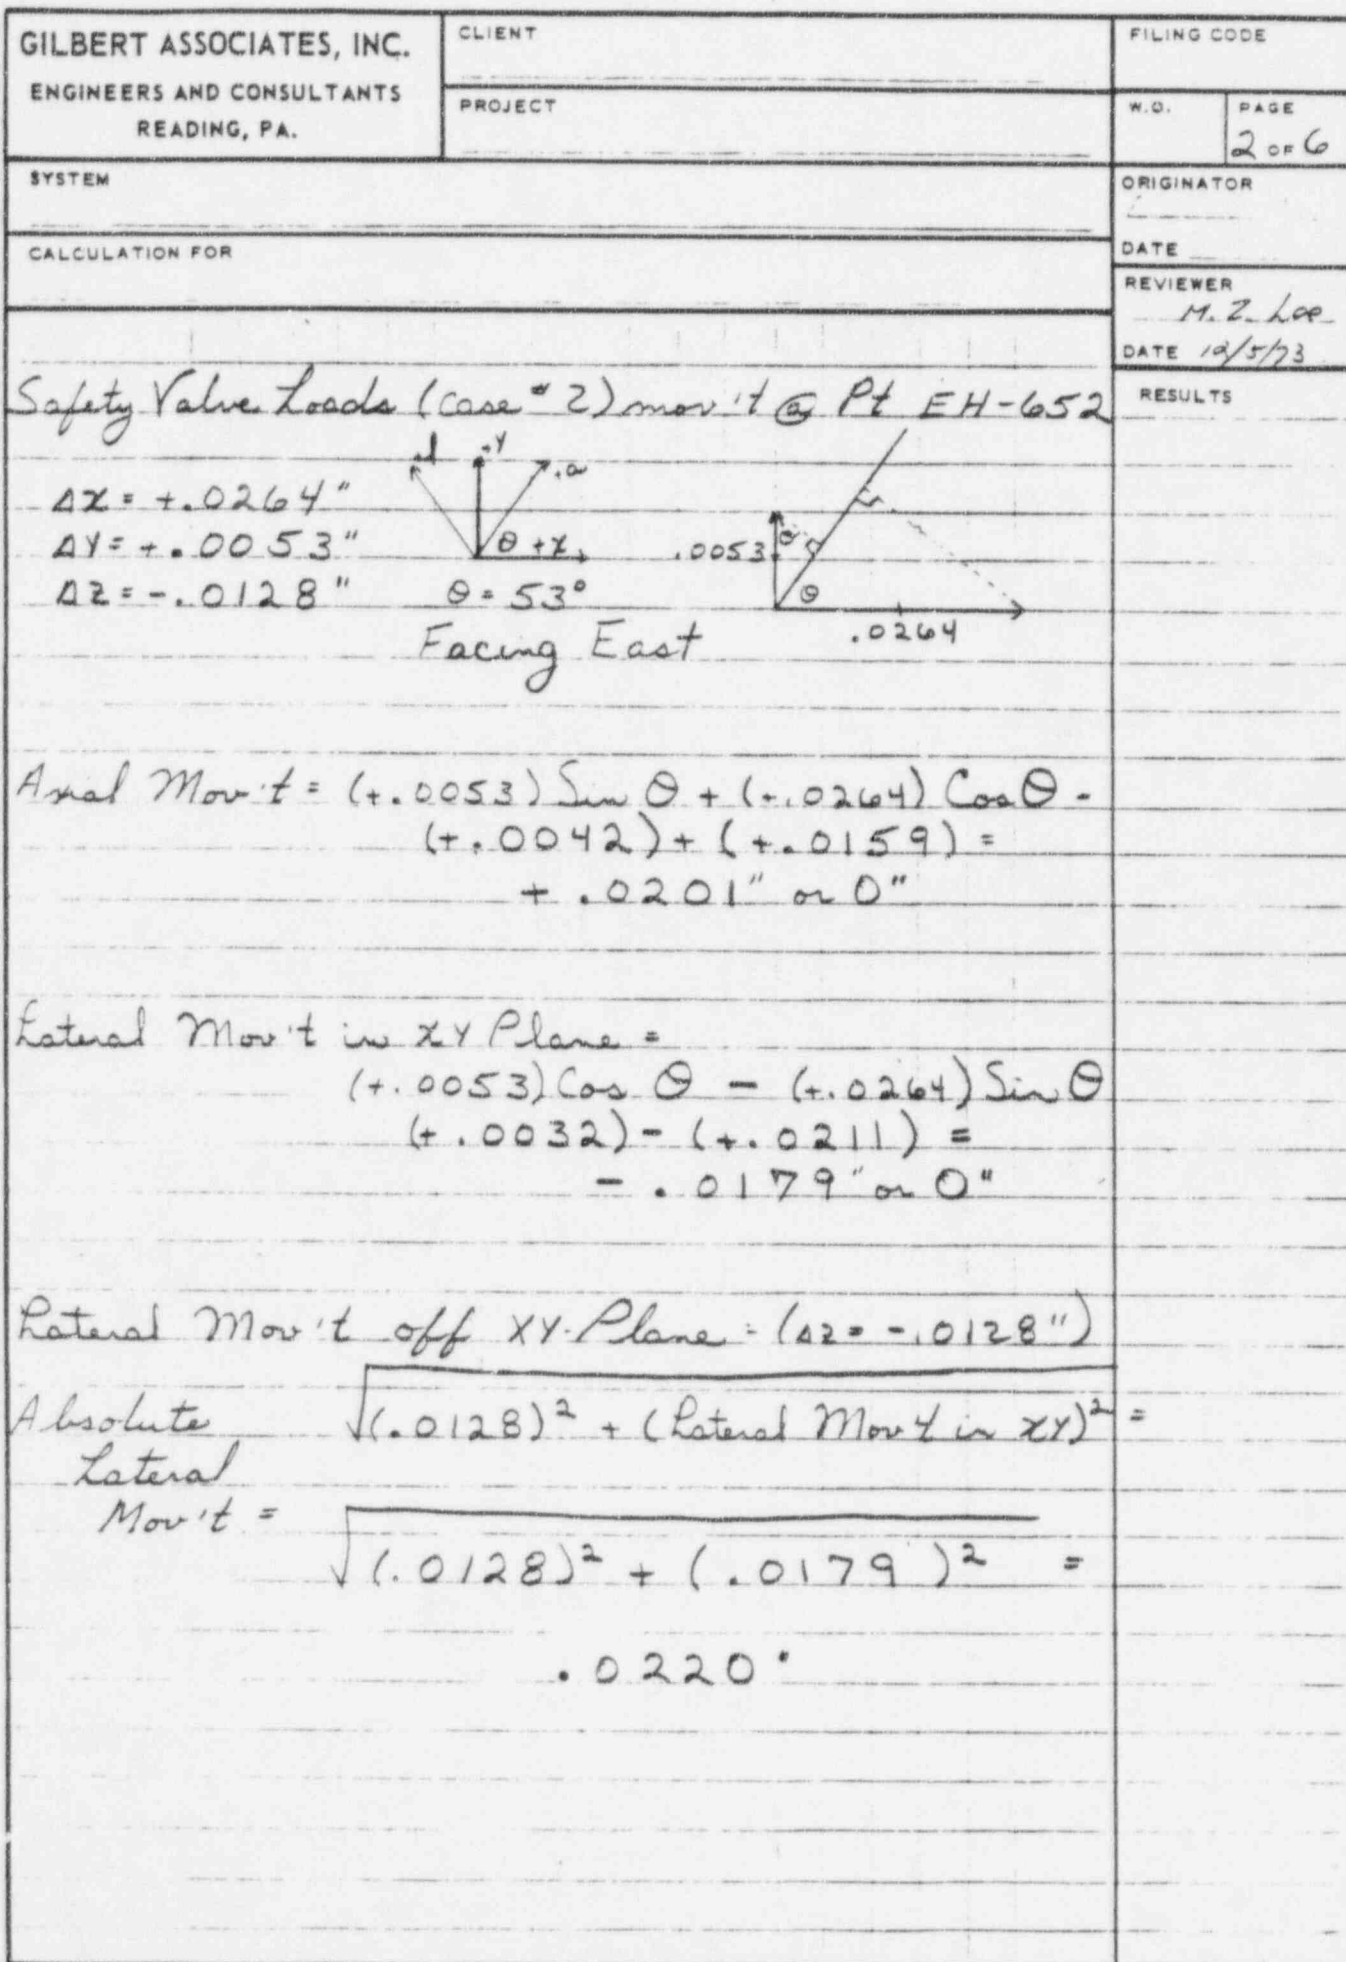 GILBERT ASSOCIATES, INC.
ENGINEERS AND CONSULTANTS
READING, PA.
CLIENT
PROJECT
FILING CODE
W.O.
PAGE
2 OF 6
SYSTEM
ORIGINATOR
DATE
CALCULATION FOR
REVIEWER
M. Z. Lee
DATE 12/5/73
RESULTS
Safety Valve Loads (case #2) mov't @ Pt EH-652
ΔX = +.0264"
ΔY = +.0053"
ΔZ = -.0128"
+l
+Y
+a
θ +X
θ = 53°
Facing East
.0053
θ
θ
.0264
Axial Mov't = (+.0053) Sin θ + (+.0264) Cos θ =
(+.0042) + (+.0159) =
+ .0201" or 0"
Lateral Mov't in XY Plane =
(+.0053) Cos θ - (+.0264) Sin θ
(+.0032) - (+.0211) =
- .0179" or 0"
Lateral Mov't off XY Plane = (ΔZ = -.0128")
Absolute Lateral Mov't =
√(.0128)² + (Lateral Mov't in XY)² =
√(.0128)² + (.0179)² =
.0220"